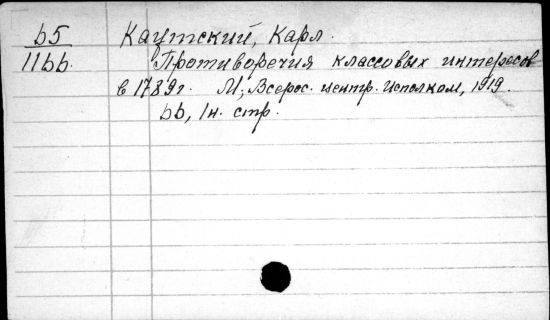 б5
1166.
Каутский, Карл.
Противоречия классовых интересов
в 1789г. М, Всерос. центр. Исполком, 1919.
66, 1н. стр.